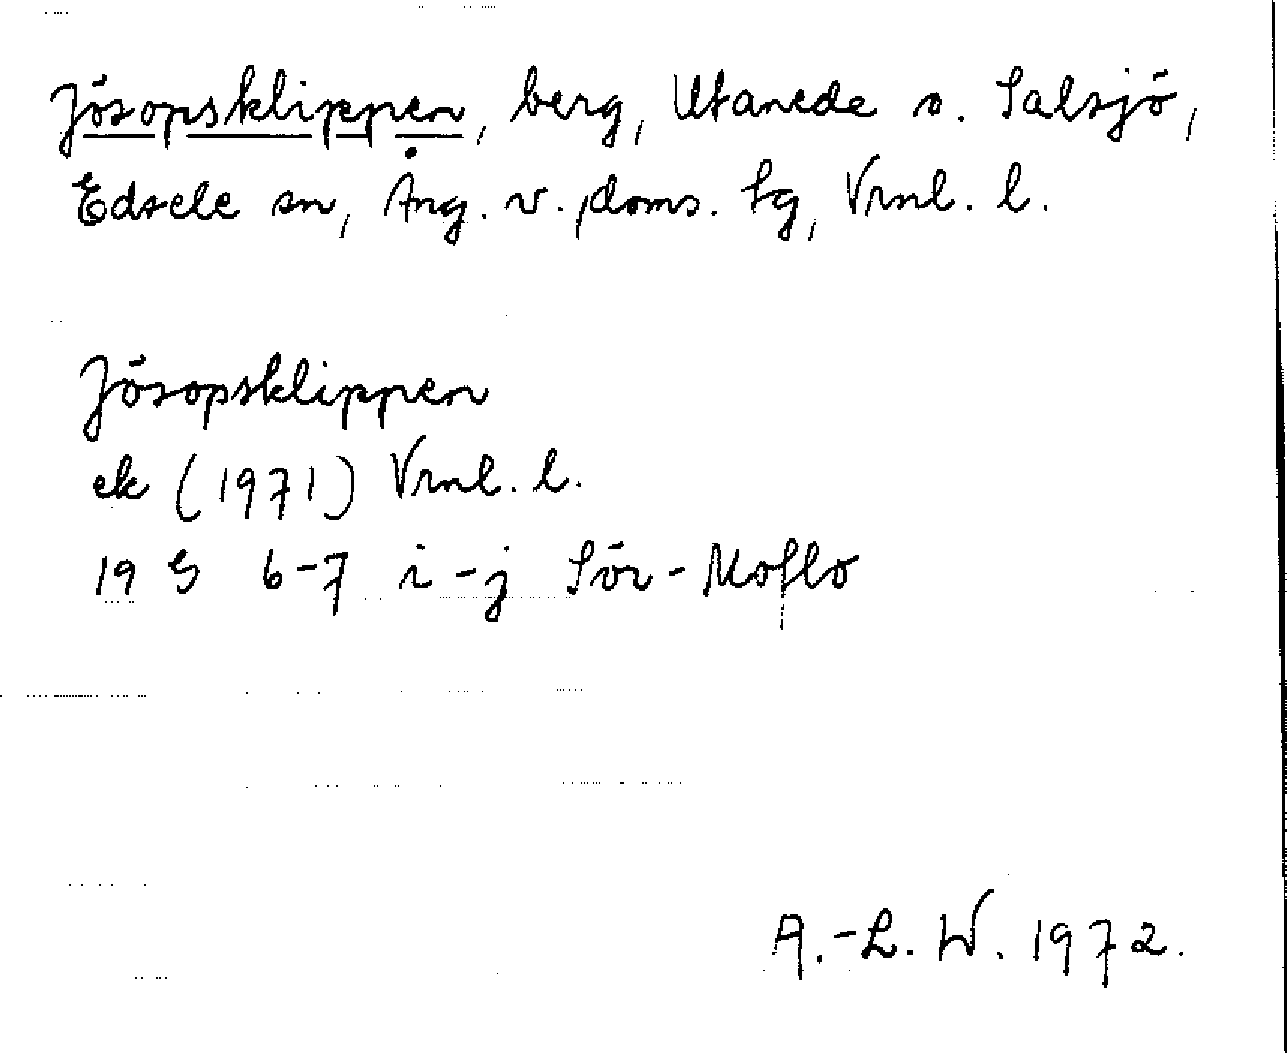 Jösopsklippen, berg, Utanede o. Salsjö,
Edsele sn, Ång. v. doms. tg, Vrnl. l.
Jösopsklippen
ek (1971) Vrnl. l.
19 G 6-7 i-j Sör-Moflo
A.-L. W. 1972.